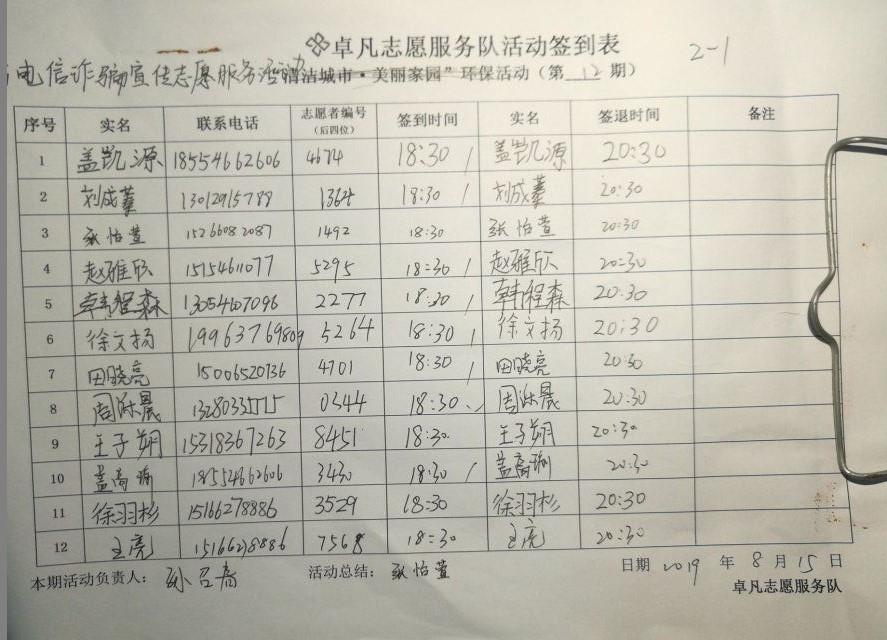 卓凡志愿服务队活动签到表
2-1
电信诈骗宣传志愿服务活动 清洁城市·美丽家园”环保活动（第 12 期）
序号 实名 联系电话 志愿者编号（后四位） 签到时间 实名 签退时间 备注
1 盖凯源 18554662606 4674 18:30 / 盖凯源 20:30
2 刘成蓁 13012915788 1364 18:30 / 刘成蓁 20:30
3 张怡萱 15266082087 1492 18:30 张怡萱 20:30
4 赵雅欣 15154611077 5295 18:30 / 赵雅欣 20:30
5 韩程森 13054607096 2277 18:30 / 韩程森 20:30
6 徐文扬 19963769809 5264 18:30 / 徐文扬 20:30
7 田晓亮 15006520136 4701 18:30 / 田晓亮 20:30
8 周 晨 0344 18:30 周 晨 20:30
9 王子朔 15318367263 8451 18:30 王子朔 20:30
10 盖 18554662606 3430 18:30 / 盖 20:30
11 徐羽杉 15166278886 3529 18:30 徐羽杉 20:30
12 王亮 15166278886 7568 18:30 王亮 20:30
本期活动负责人： 孙召 活动总结： 张怡萱 日期 2019 年 8 月 15 日
卓凡志愿服务队